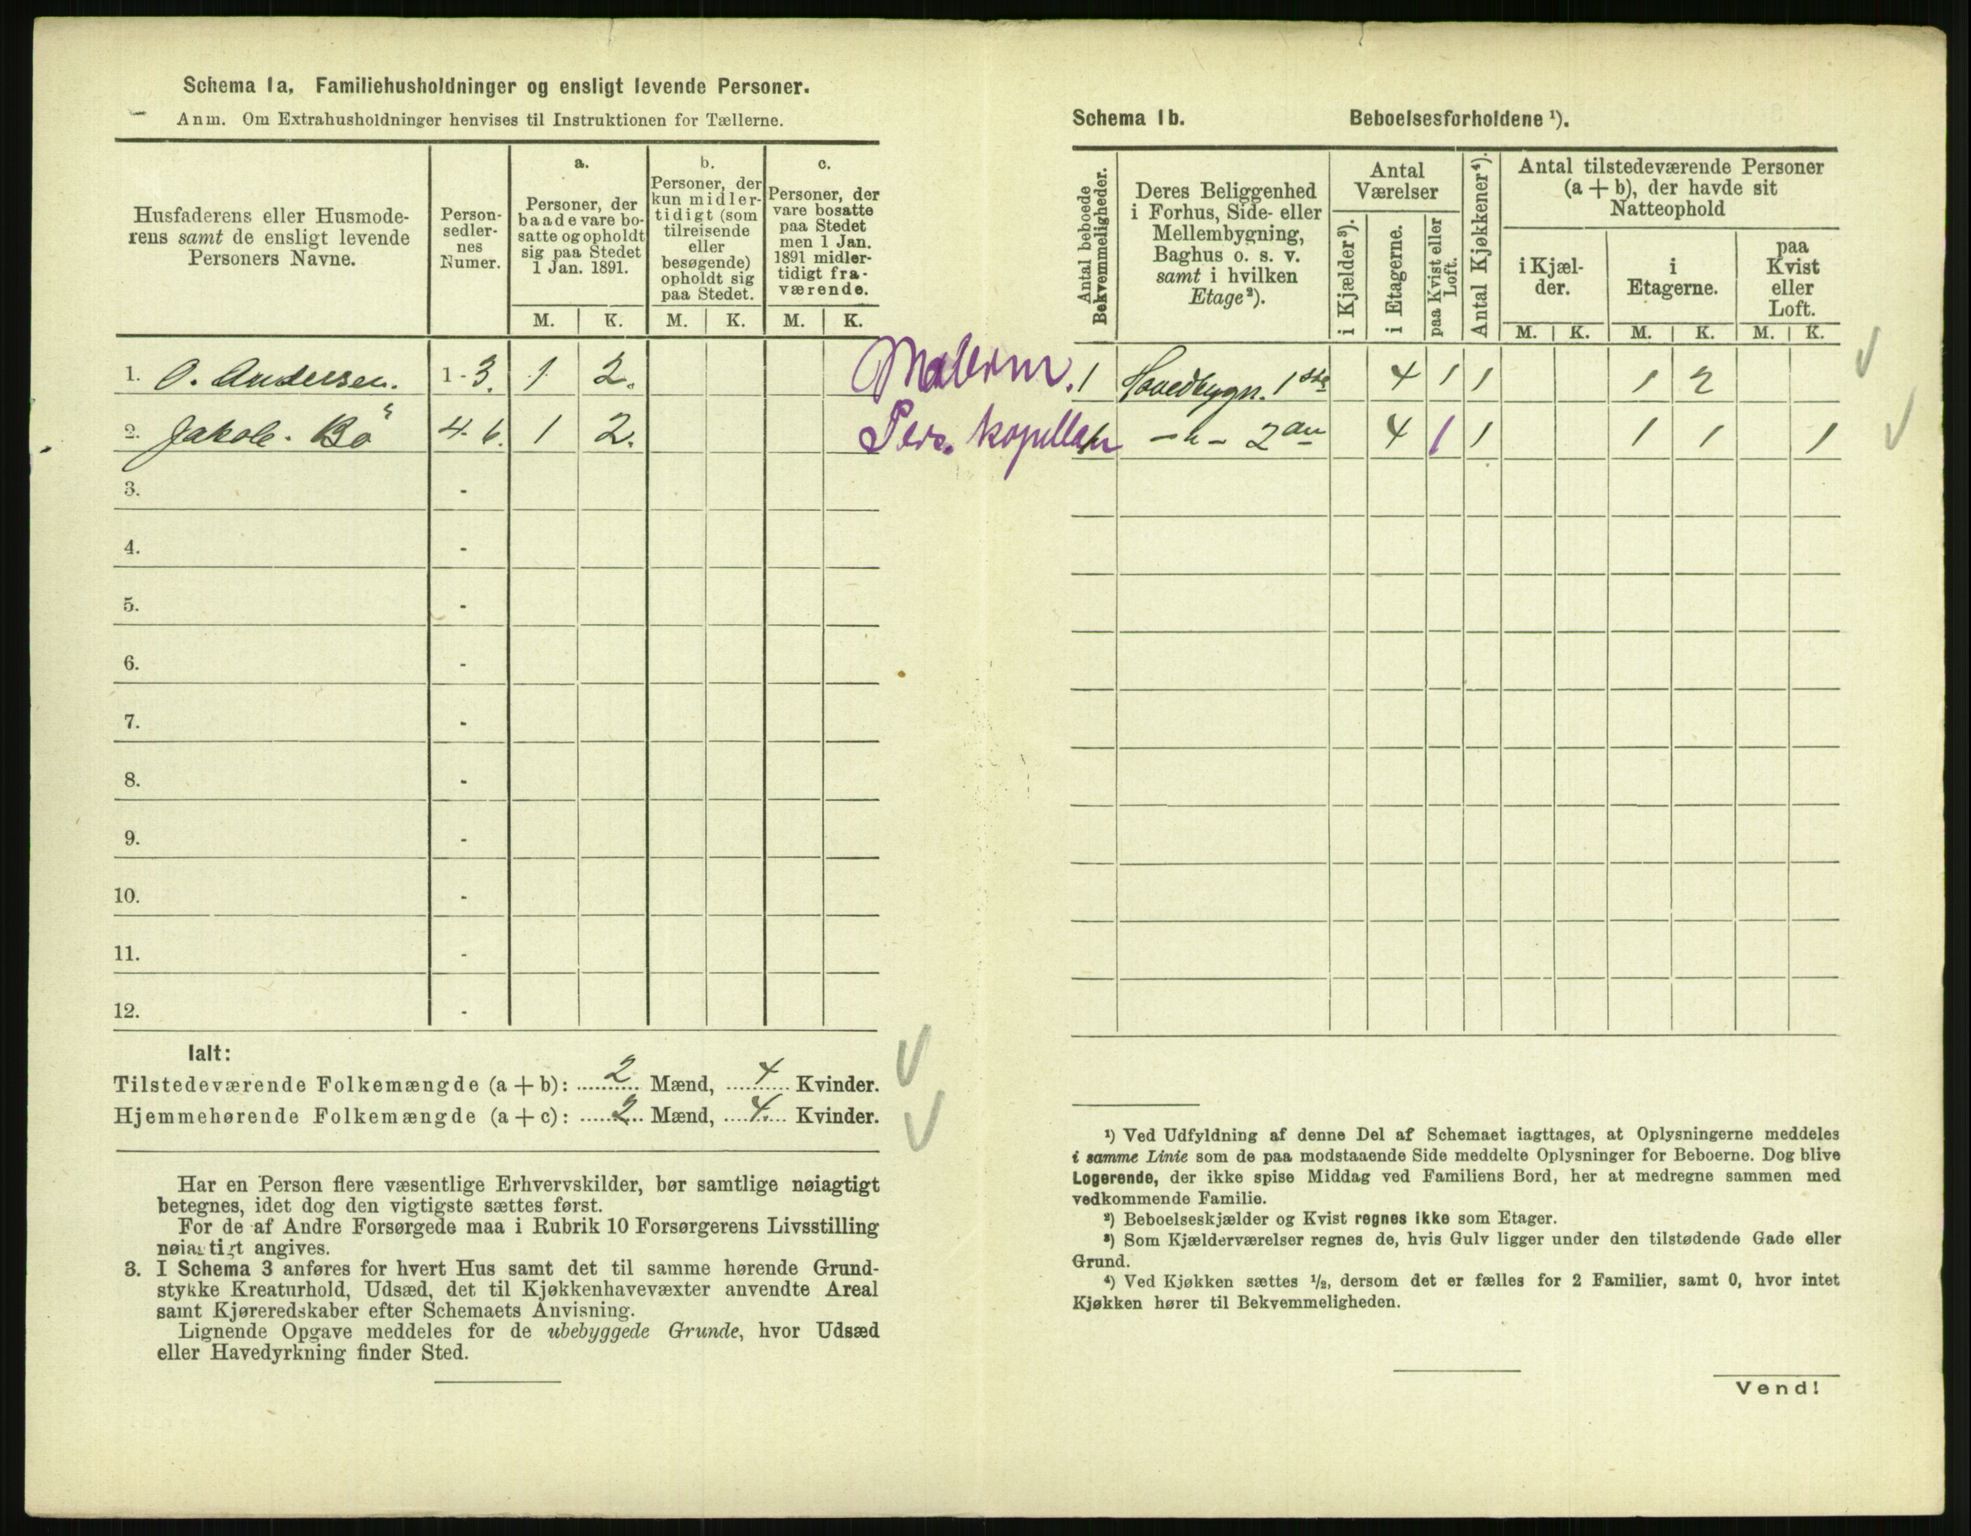 Schema 1a, Familiehusholdninger og ensligt levende Personer.
Anm. Om Extrahusholdninger henvises til Instruktionen for Tællerne.
Husfaderens eller Husmode-
rens samt de ensligt levende
Personers Navne.
Person-
sedler-
nes
Numer.
a.
Personer, der
baade vare bo-
satte og opholdt
sig paa Stedet
1 Jan. 1891.
b.
Personer, der
kun midler-
tidigt (som
tilreisende
eller
besøgende)
opholdt sig
paa Stedet.
c.
Personer, der
vare bosatte
paa Stedet
men 1 Jan.
1891 midler-
tidigt fra-
værende.
M. K. M. K. M. K.
1. O. Andersen. 1-3. 1 2.
2. Jakob Bö 4-6. 1 2.
3. -
4. -
5. -
6. -
7. -
8. -
9. -
10. -
11. -
12. -
Ialt:
Tilstedeværende Folkemængde (a + b): 2 Mænd, 4 Kvinder.
Hjemmehørende Folkemængde (a + c): 2 Mænd, 4. Kvinder.
Har en Person flere væsentlige Erhvervskilder, bør samtlige nøiagtigt
betegnes, idet dog den vigtigste sættes først.
For de af Andre Forsørgede maa i Rubrik 10 Forsørgerens Livsstilling
nøiagtigt angives.
3. I Schema 3 anføres for hvert Hus samt det til samme hørende Grund-
stykke Kreaturhold, Udsæd, det til Kjøkkenhavevæxter anvendte Areal
samt Kjøreredskaber efter Schemaets Anvisning.
Lignende Opgave meddeles for de ubebyggede Grunde, hvor Udsæd
eller Havedyrkning finder Sted.
Schema 1b. Beboelsesforholdene ¹).
Antal beboede
Bekvemmeligheder.
Deres Beliggenhed
i Forhus, Side- eller
Mellembygning,
Baghus o. s. v.
samt i hvilken
Etage²).
Antal
Værelser
i Kjælder³).
i Etagerne.
paa Kvist eller
Loft.
Antal Kjøkkener⁴).
Antal tilstedeværende Personer
(a + b), der havde sit
Natteophold
i Kjæl-
der.
i
Etagerne.
paa
Kvist
eller
Loft.
M. K. M. K. M. K.
1 Hovedbygn. 1ste 4 1 1 1 2
Pers. kapellan 1 -"- 2den 4 1 1 1 1 1
¹) Ved Udfyldning af denne Del af Schemaet iagttages, at Oplysningerne meddeles
i samme Linie som de paa modstaaende Side meddelte Oplysninger for Beboerne. Dog blive
Logerende, der ikke spise Middag ved Familiens Bord, her at medregne sammen med
vedkommende Familie.
²) Beboelseskjælder og Kvist regnes ikke som Etager.
³) Som Kjælderværelser regnes de, hvis Gulv ligger under den tilstødende Gade eller
Grund.
⁴) Ved Kjøkken sættes ½, dersom det er fælles for 2 Familier, samt 0, hvor intet
Kjøkken hører til Bekvemmeligheden.
Vend!